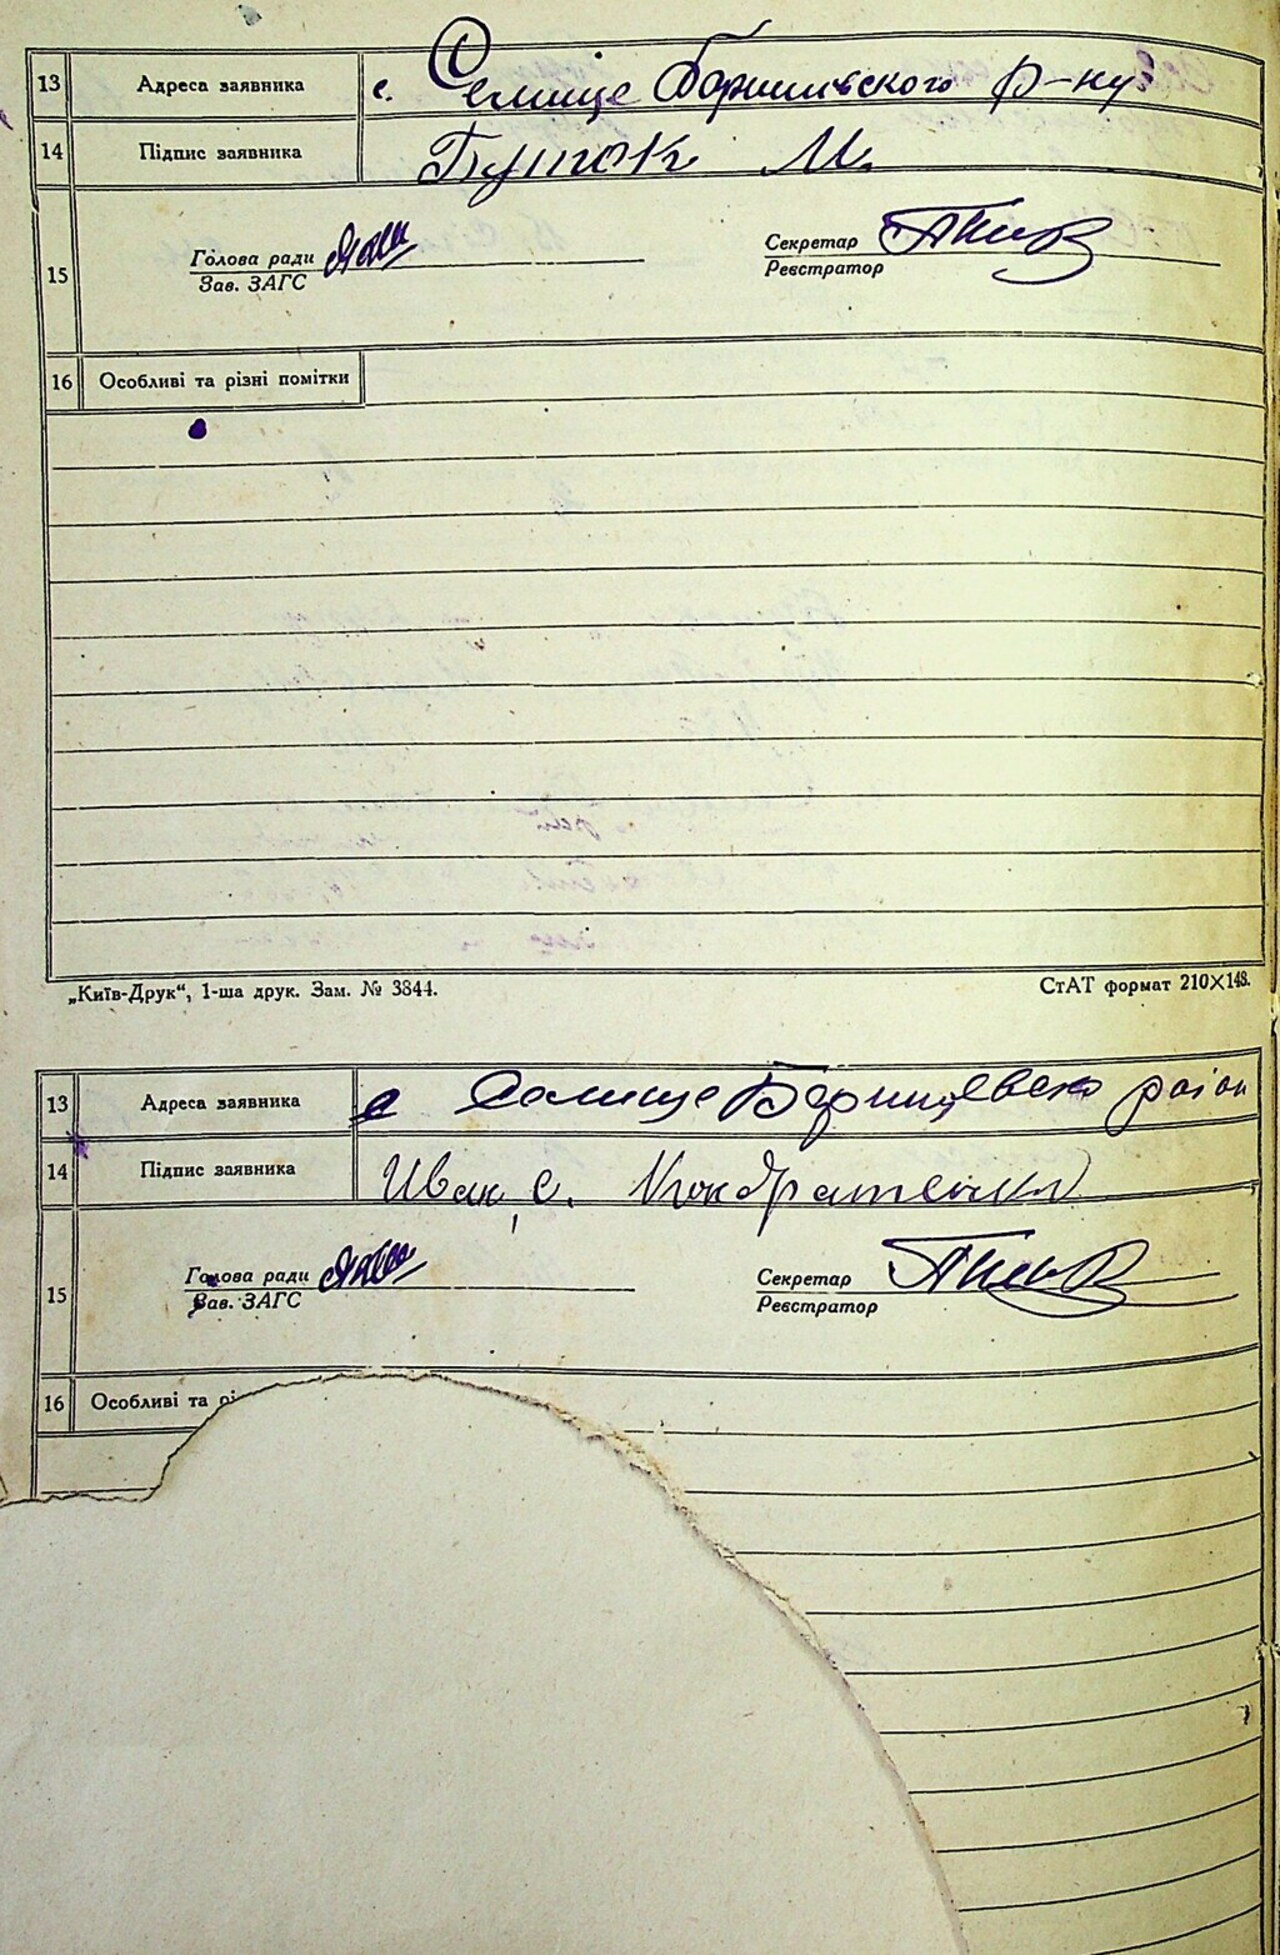 13 Адреса заявника с. Селище Боришивского р-ну
14 Підпис заявника Буток М.
15 Голова ради Секретар
Зав. ЗАГС Реєстратор
16 Особливі та різні помітки
„Київ-Друк“, 1-ша друк. Зам. № 3844. СтАТ формат 210×148.
13 Адреса заявника с Селище район
14 Підпис заявника
15 Голова ради Секретар
Зав. ЗАГС Реєстратор
16 Особливі та рі